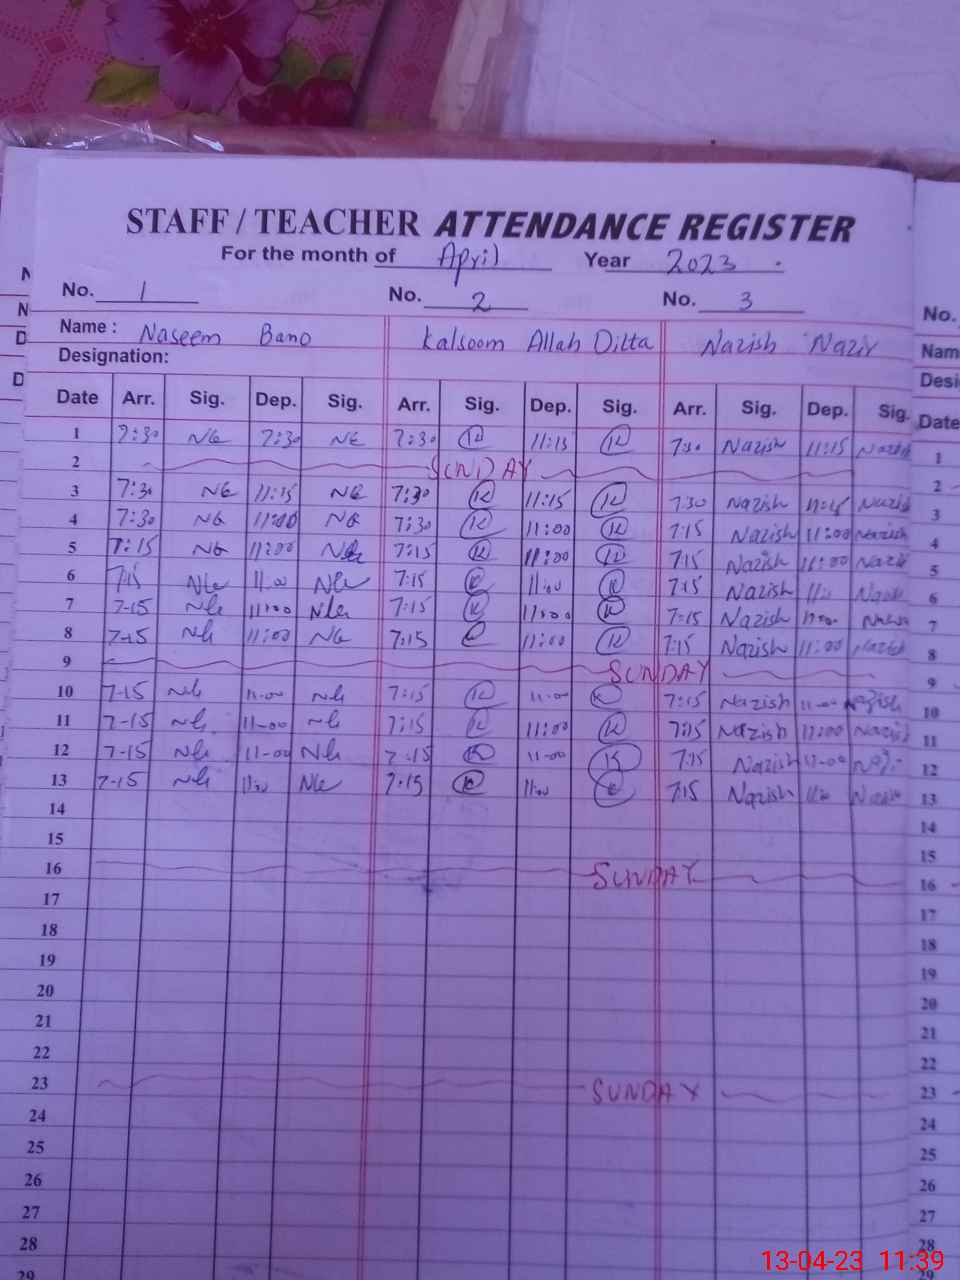 STAFF / TEACHER ATTENDANCE REGISTER
For the month of April Year 2023
No. 1 No. 2 No. 3
Name : Naseem Bano Kalsoom Allah Ditta Nazish Nazir
Designation:
Date Arr. Sig. Dep. Sig. Arr. Sig. Dep. Sig. Arr. Sig. Dep. Sig.
1 7:30 7:30 7:30 K 11:15 K 7:30 Nazish 11:15 Nazish
2 SUNDAY
3 7:30 11:15 7:30 K 11:15 K 7:30 Nazish 11:15 Nazish
4 7:30 11:00 7:30 K 11:00 K 7:15 Nazish 11:00 Nazish
5 7:15 11:00 7:15 K 11:00 K 7:15 Nazish 11:00 Nazish
6 7:15 11:00 7:15 K 11:00 K 7:15 Nazish
7 7-15 11:00 7:15 K 11:00 K 7:15 Nazish 11:00
8 7-15 11:00 7:15 11:00 K 7:15 Nazish 11:00 Nazish
9 SUNDAY
10 7-15 11-00 7:15 K 11-00 K 7:15 Nazish 11-00 Nazish
11 7-15 11-00 7:15 K 11:00 K 7:15 Nazish 11:00 Nazish
12 7-15 11-00 7:15 K 11-00 K 7:15 Nazish 11-00
13 7-15 11:00 7:15 K 11:00 K 7:15 Nazish Nazish
14
15
16 SUNDAY
17
18
19
20
21
22
23 SUNDAY
24
25
26
27
28
29
No.
Name
Desi
Date
1
2
3
4
5
6
7
8
9
10
11
12
13
14
15
16
17
18
19
20
21
22
23
24
25
26
27
28
13-04-23 11:39